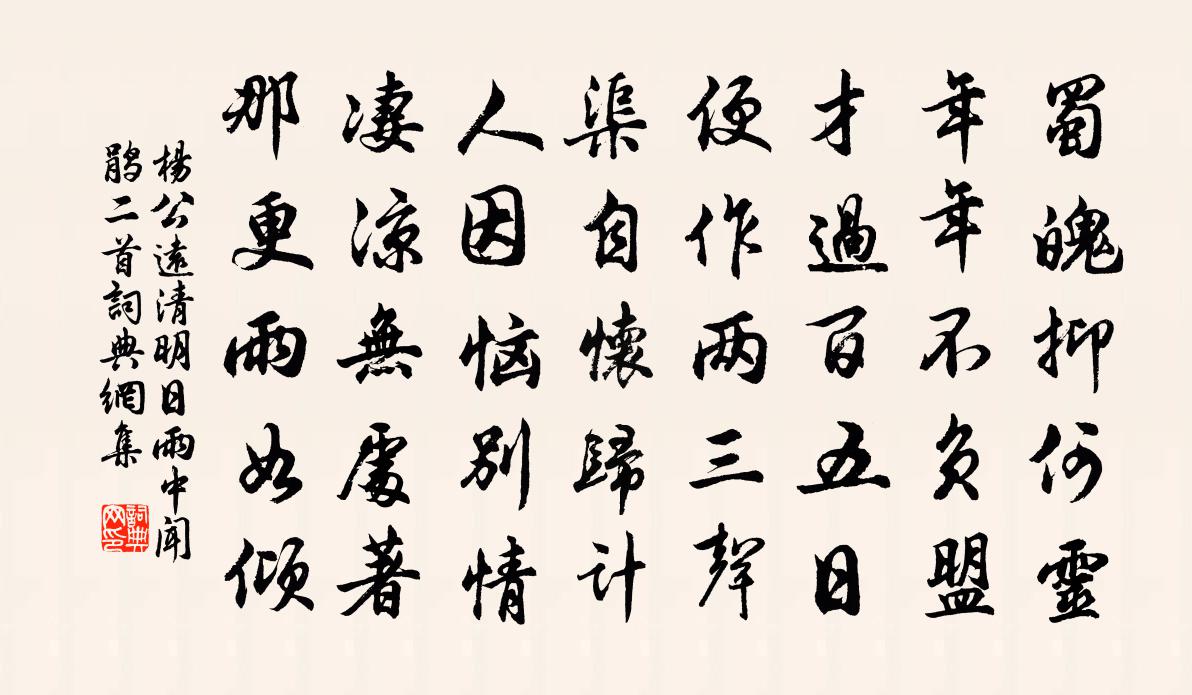 蜀魄抑何靈
年年不負盟
才過百五日
便作两三聲
渠自懷歸計
人因惱別情
凄涼無處著
那更雨如傾
楊公遠清明日雨中聞
鹃二首詞典網集
詞典
网印